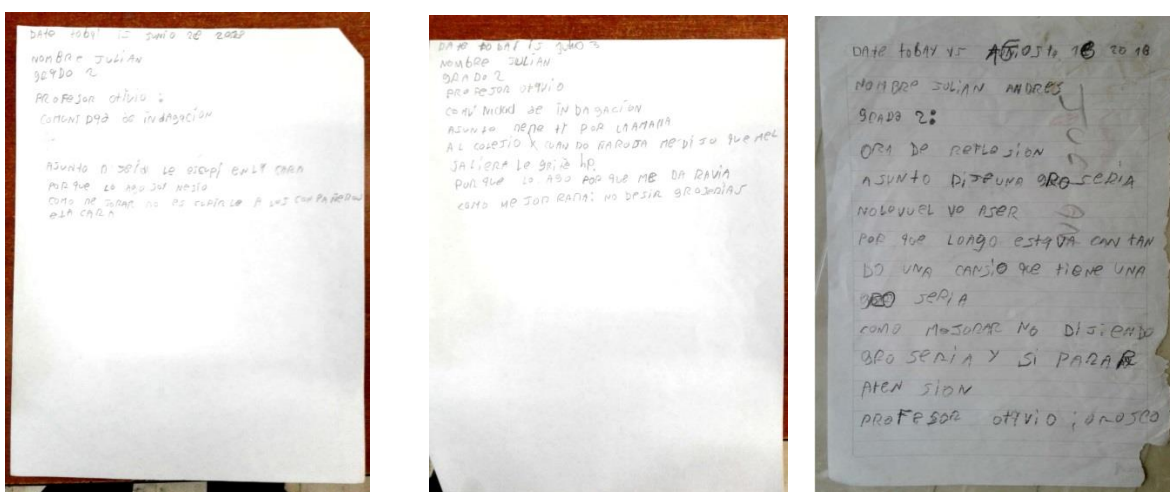 DATE TODAY IS JUNIO DE 2018
NOMBRE JULIAN
GRADO 2
PROFESOR OTIVIO :
COMUNIDAD DE INDAGACION
ASUNTO LE ESCUPI EN LA CARA
POR QUE LO AGO SOI NESIO
COMO MEJORAR NO ESCUPIRLE A LOS COMPAÑEROS
LA CARA
DATE TODAY IS JUNIO
NOMBRE JULIAN
GRADO 2
PROFESOR OTAVIO
DE INDAGACION
ASUNTO POR LA MAÑANA
AL COLEJIO ME DIJO QUE ME
SALIERA LE GRITO HP.
POR QUE LO AGO POR QUE ME DA RAVIA
COMO ME JOR RARA: NO DESIR GROSERIAS
DATE TODAY VS AGOSTO 2018
NOMBRE JULIAN ANDRES
GRADO 2:
ORA DE REFLESION
ASUNTO DIJE UNA GROSERIA
NO LO VUEL VO ASER
POR QUE LO AGO ESTAVA CAN TAN
DO UNA CANSIO QUE TIENE UNA
GRO SERIA
COMO MEJORAR NO DISIENDO
GRO SERIA Y SI PARAR
ATEN SION
PROFESOR OTAVIO ; OROSCO